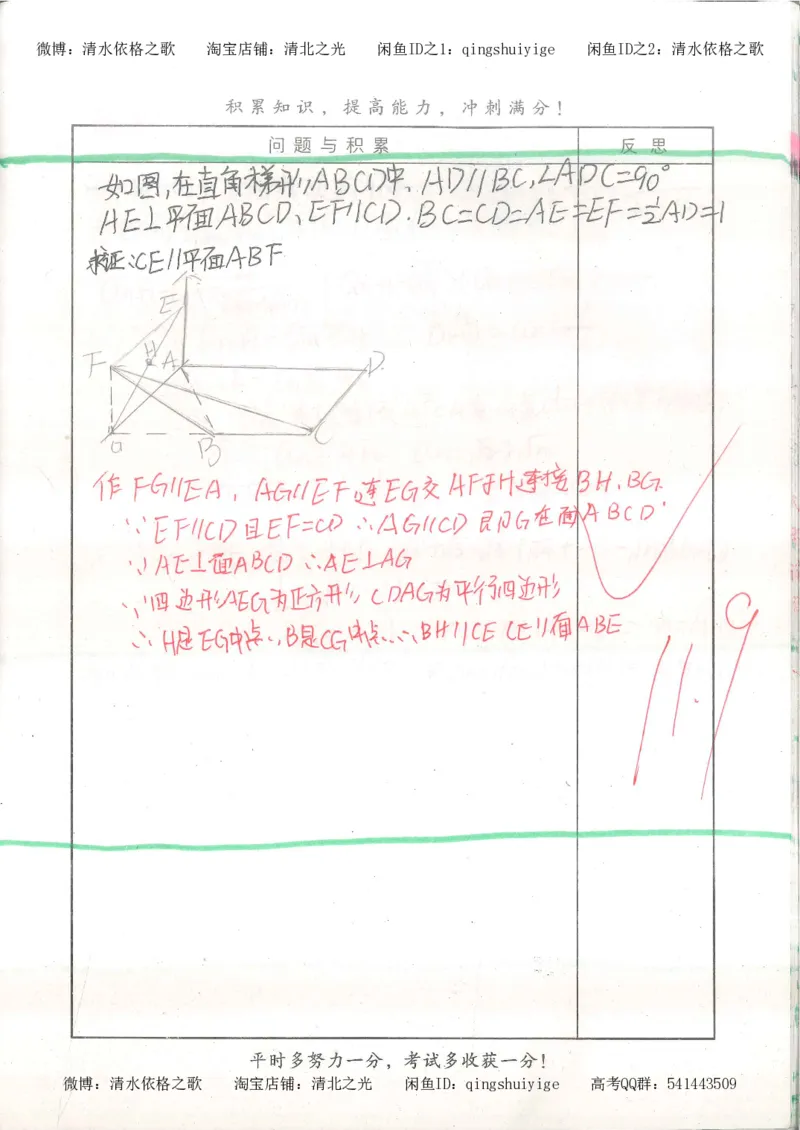 微博：清水依格之歌 淘宝店铺：清北之光 闲鱼ID之1：qingshuiyige 闲鱼ID之2：清水依格之歌
积累知识，提高能力，冲刺满分！
问题与积累 反思
如图,在直角梯形ABCD中、AD//BC,∠ADC=90°
AE⊥平面ABCD、EF//CD.BC=CD=AE=EF=½AD=1
求证:CE//平面ABF
E
F H A D
G B C
作FG//EA，AG//EF,连EG交AF于H,连接BH、BG.
∵EF//CD且EF=CD ∴AG//CD 即G在面ABCD
∵AE⊥面ABCD ∴AE⊥AG
∵四边形AEG为正方形,CDAG为平行四边形
∴H是EG中点∵B是CG中点∴BH//CE CE//面ABE
11.9
平时多努力一分，考试多收获一分！
微博：清水依格之歌 淘宝店铺：清北之光 闲鱼ID：qingshuiyige 高考QQ群：541443509